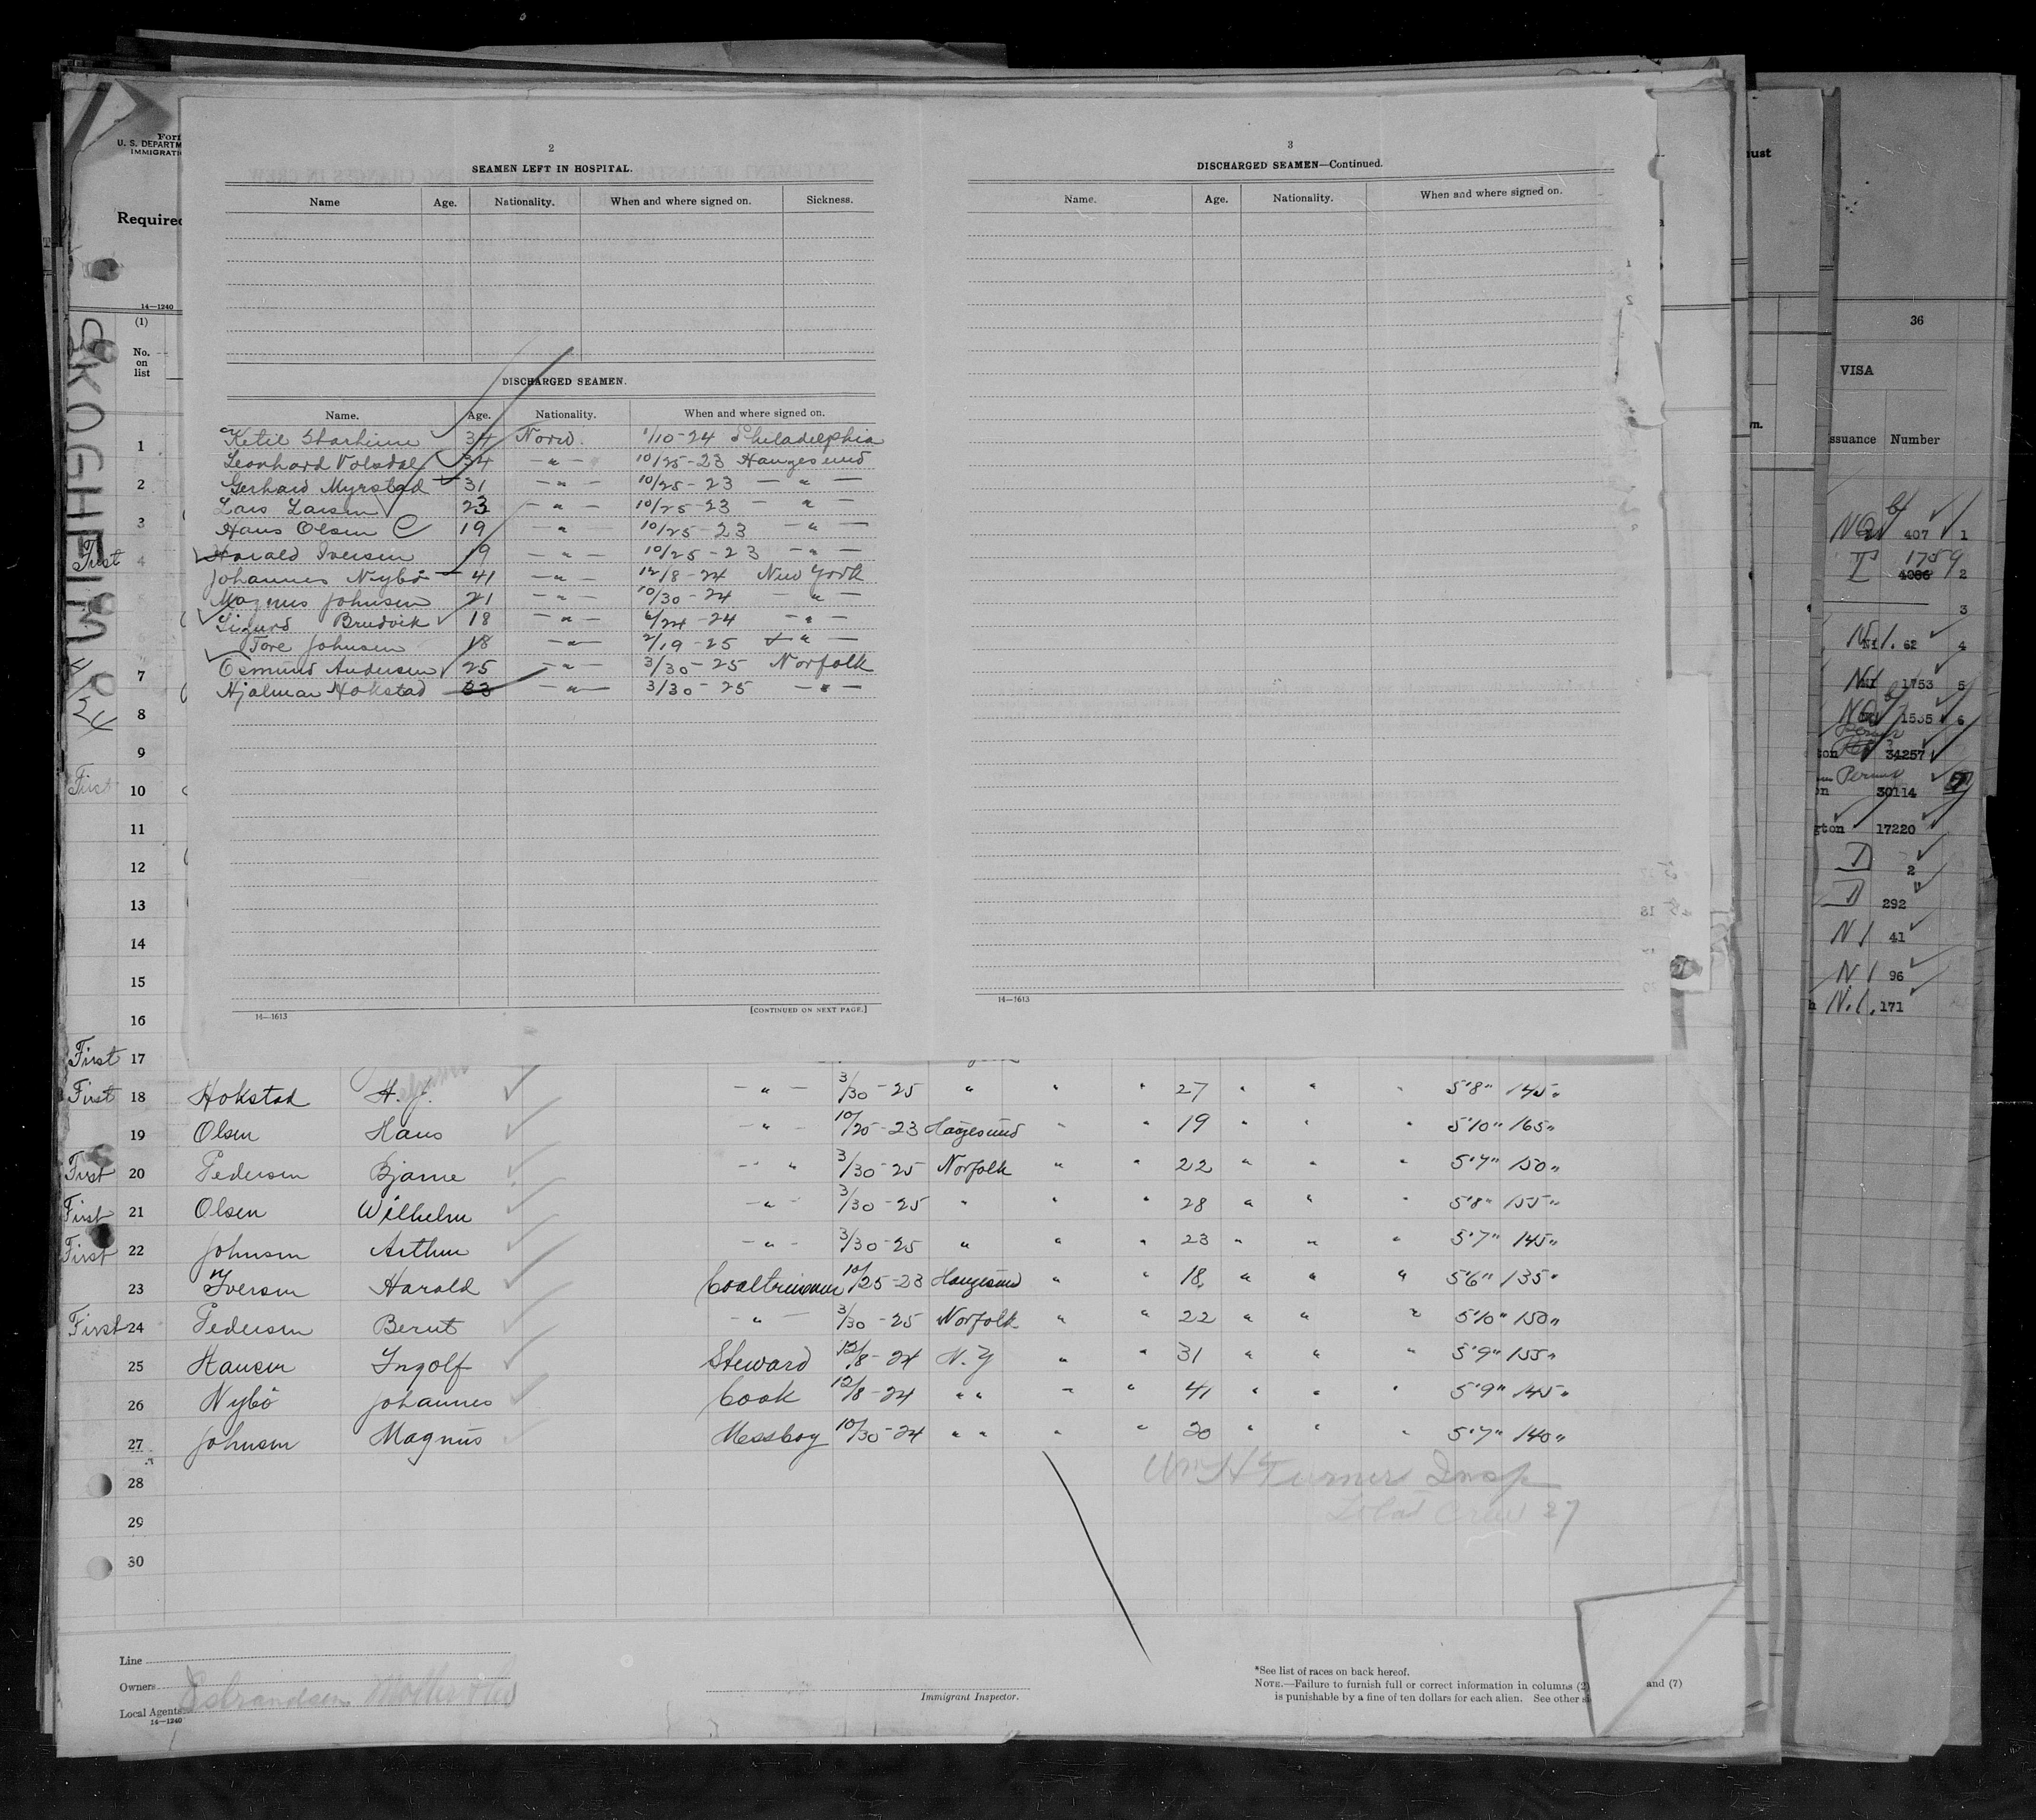 2
SEAMEN LEFT IN HOSPITAL.
Name Age. Nationality. When and where signed on. Sickness.
DISCHARGED SEAMEN.
Name. Age. Nationality. When and where signed on.
Ketil 34 Norw. 1/10-24 Philadelphia
Leonhard Volsdal 34 — " — 10/25-23 Haugesund
Gerhard Myrstad 31 — " — 10/25-23 — " —
Lars Larsen 23 — " — 10/25-23 — " —
Hans Olsen 19 — " — 10/25-23 — " —
Harald Iversen 19 — " — 10/25-23 — " —
Johannes Nybö 41 — " — 12/8-24 New York
Magnus Johnsen 21 — " — 10/30-24 — " —
Sigurd Brudvik 18 — " — /24-24 — " —
Tore Johnsen 18 — " — 2/19-25 — " —
Osmund Andersen 25 — " — 3/30-25 Norfolk
Hjalmar Hokstad 33 — " — 3/30-25 — " —
14—1613 [CONTINUED ON NEXT PAGE.]
3
DISCHARGED SEAMEN—Continued.
Name. Age. Nationality. When and where signed on.
14—1613
Form
U. S. DEPARTM
IMMIGRATI
Required
14—1240
(1)
No.
on
list
SKOGHEIM
1
2
3
First 4
7
8
9
First 10
11
12
13
14
15
16
First 17
First 18 Hokstad H. J. — " — 3/30-25 " " " 27 " " " 5'8" 145"
19 Olsen Hans — " — 10/25-23 Haugesund " " 19 " " " 5'10" 165"
First 20 Pedersen Bjarne — " — 3/30-25 Norfolk " " 22 " " " 5'7" 150"
First 21 Olsen Wilhelm — " — 3/30-25 " " " 28 " " " 5'8" 155"
First 22 Johnsen Arthur — " — 3/30-25 " " " 23 " " " 5'7" 145"
23 Iversen Harald Coaltrimmer 10/25-23 Haugesund " " 18 " " " 5'6" 135"
First 24 Pedersen Bernt — " — 3/30-25 Norfolk " " 22 " " " 5'10" 150"
25 Hansen Ingolf Steward 12/8-24 N.Y " " 31 " " " 5'9" 155"
26 Nybö Johannes Cook 12/8-24 " " " " 41 " " " 5'9" 145"
27 Johnsen Magnus Messboy 10/30-24 " " " " 20 " " " 5'7" 140"
28
29
30
Wm H Turner Insp
Total Crew 27
Line
Owners
Local Agents
14—1240
Immigrant Inspector.
*See list of races on back hereof.
NOTE.—Failure to furnish full or correct information in columns (2) and (7)
is punishable by a fine of ten dollars for each alien. See other si
ust
36
VISA
ssuance Number
407 1
1759
4086 2
3
N.I. 62 4
1753 5
1535 6
ton 34257
Permit
30114
gton 17220
2
292
N I 41
N.I 96
h N.I. 171